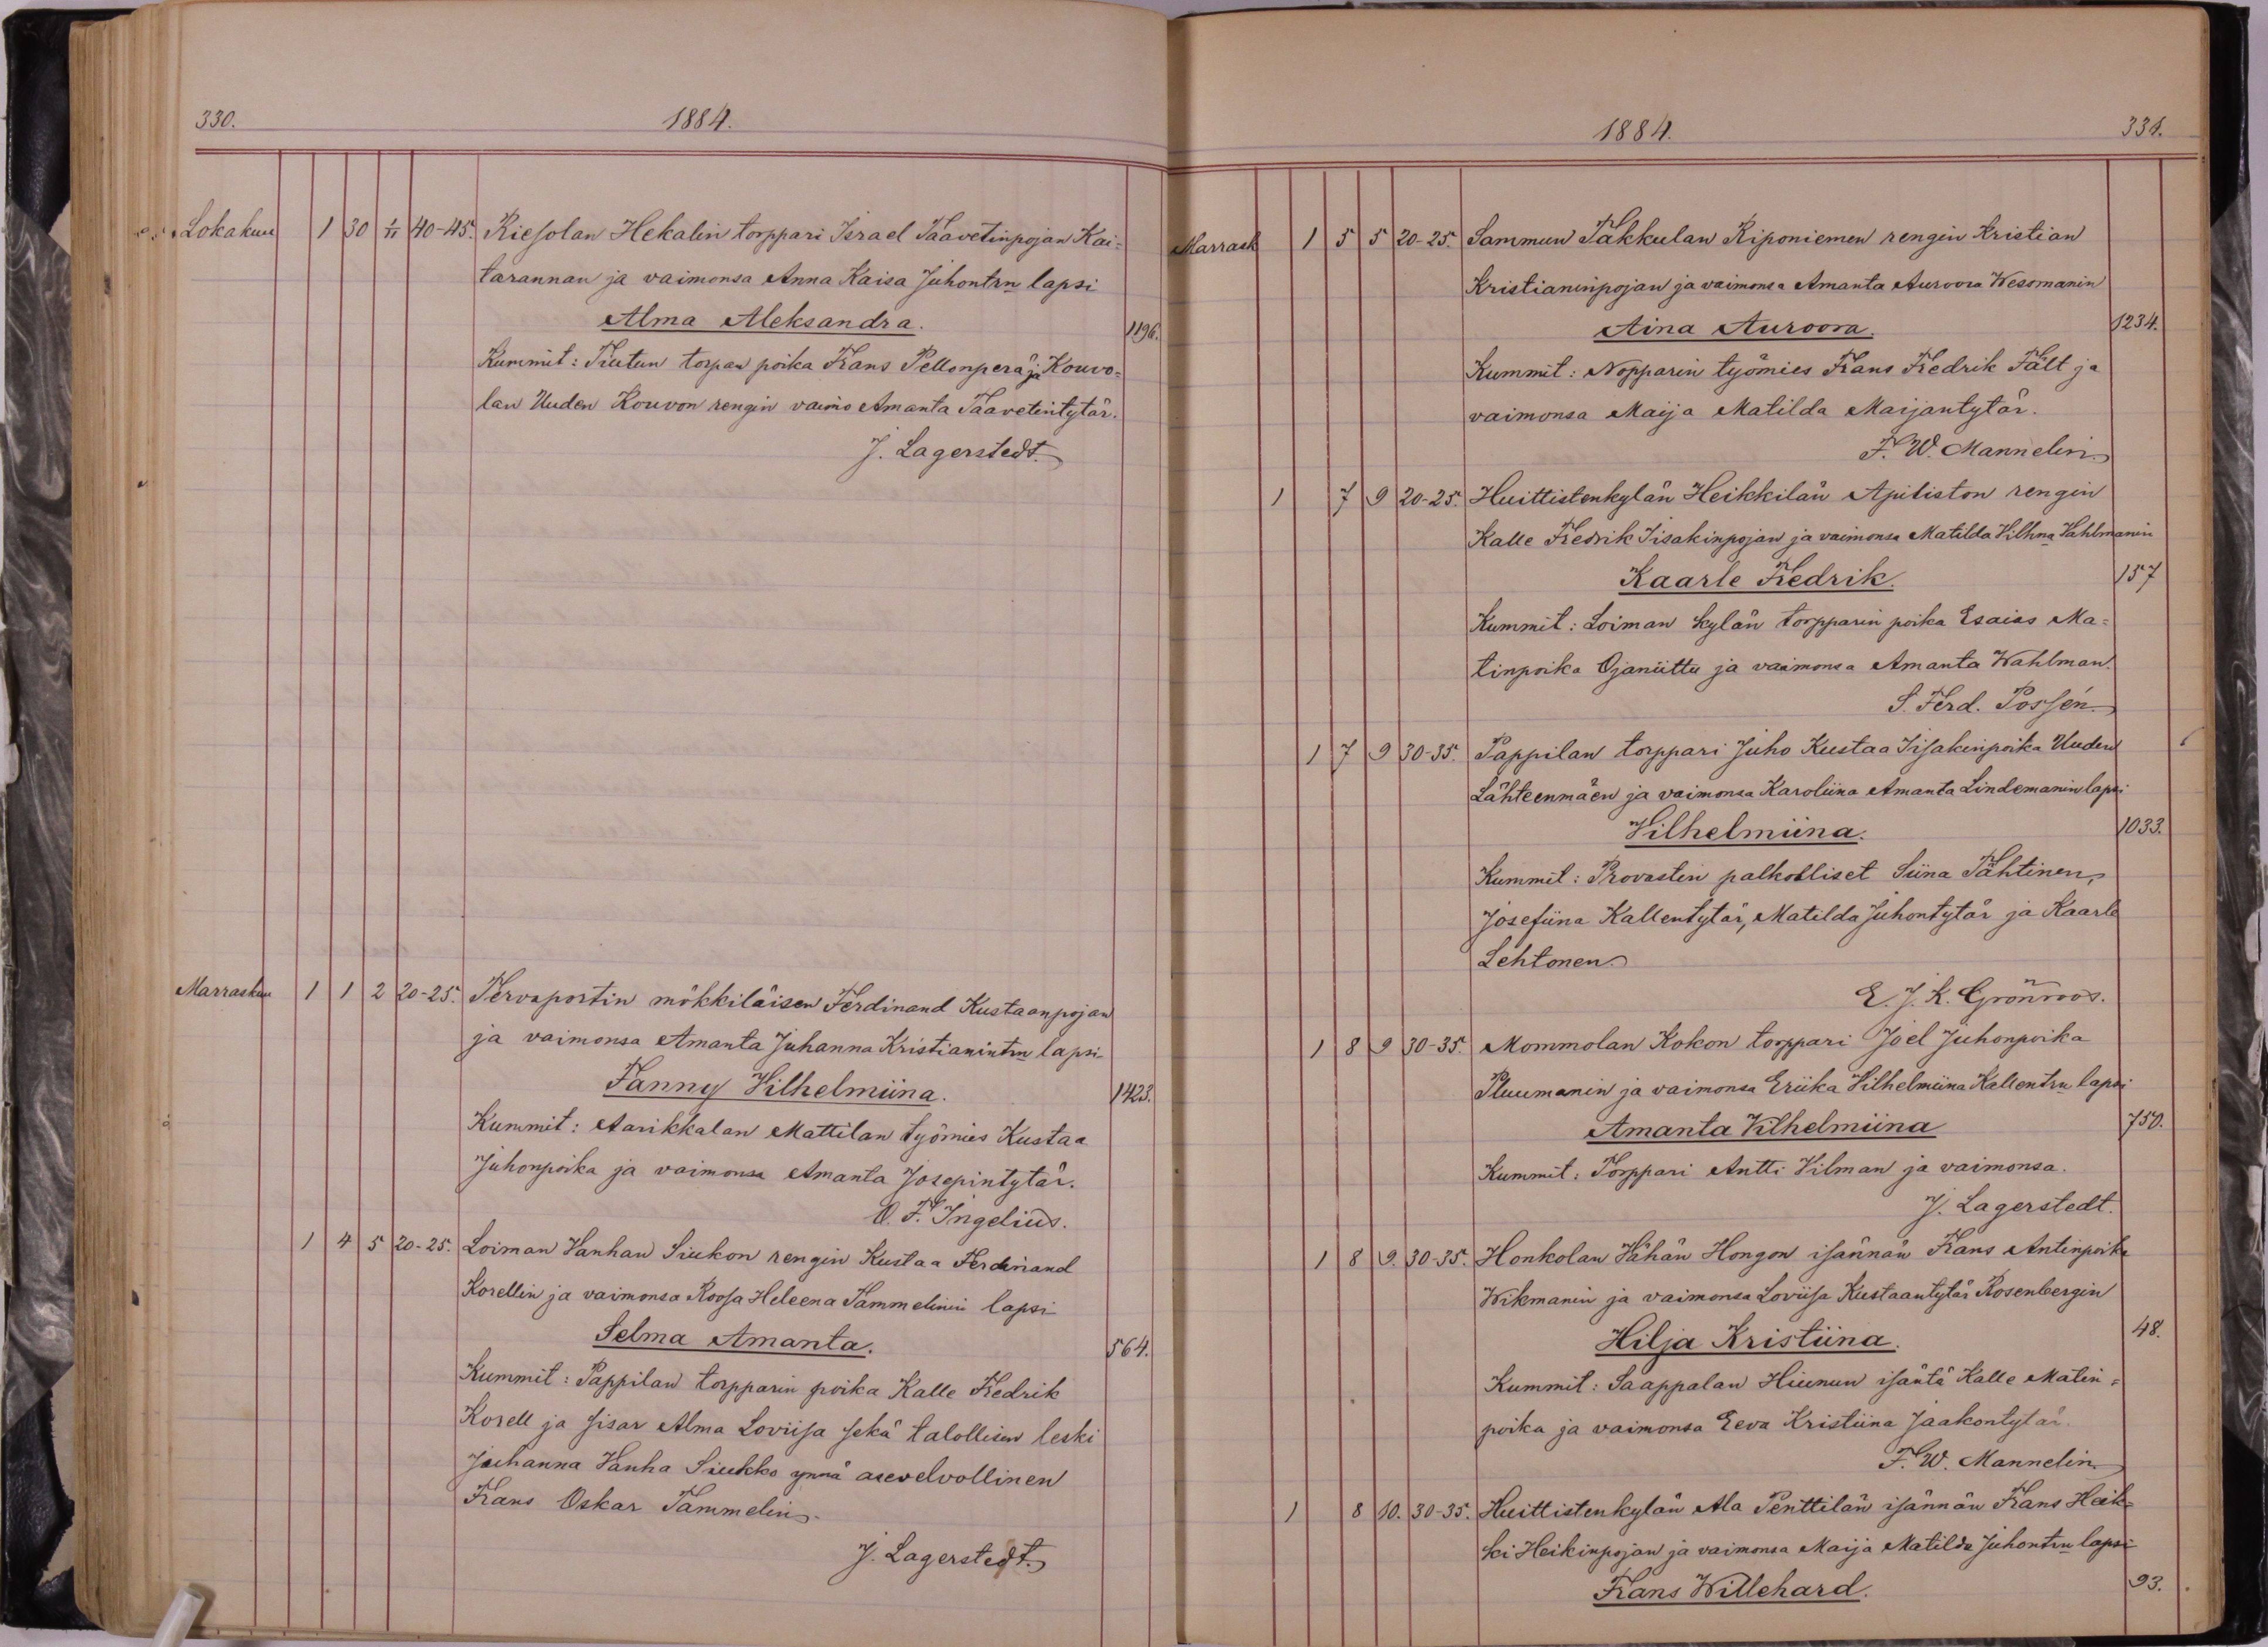 330.
1884.
Lokakuu 1 30 1/11 40-45. Riesolan Hekalin torppari Israel Taavetinpojan Kai=
tarannan ja vaimonsa Anna Kaisa Juhontrn lapsi
Alma Aleksandra. 1196.
Kummit: Tiutun torpan poika Frans Pellonperä ja Kouvo=
lan Uuden Kouvon rengin vaimo Amanta Taavetintytär.
J. Lagerstedt.
Marraskuu 1 1 2 20-25. Tervaportin mökkiläisen Ferdinand Kustaanpojan
ja vaimonsa Amanta Juhanna Kristianintrn lapsi
Fanny Vilhelmiina. 1423.
Kummit: Aarikkalan Mattilan työmies Kustaa
Juhonpoika ja vaimonsa Amanta Josepintytär.
O. F. Ingelius.
1 4 5 20-25. Loiman Vanhan Siukon rengin Kustaa Ferdinand
Korellin ja vaimonsa Roosa Heleena Tammelinin lapsi
Selma Amanta. 564.
Kummit: Pappilan torpparin poika Kalle Fredrik
Korell ja sisar Alma Loviisa sekä talollisen leski
Juhanna Vanha Siukko ynnä asevelvollinen
Frans Oskar Tammelin.
J. Lagerstedt.
1884.
331.
Marrask 1 5 5 20-25. Sammun Takkulan Riponiemen rengin Kristian
Kristianinpojan ja vaimonsa Amanta Auroora Wesomanin
Aina Auroora. 1234.
Kummit: Nopparin työmies Frans Fredrik Fält ja
vaimonsa Maija Matilda Maijantytär.
F. W. Mannelin.
1 7 9 20-25. Huittistenkylän Heikkilän Apiliston rengin
Kalle Fredrik Iisakinpojan ja vaimonsa Matilda Vilhna Vahlmanin
Kaarle Fredrik. 157
Kummit: Loiman kylän torpparin poika Esaias Ma=
tinpoika Ojaniittu ja vaimonsa Amanta Wahlman.
S. Ferd. Possén.
1 7 9 30-35. Pappilan torppari Juho Kustaa Iisakinpoika Uuden
Lähteenmäen ja vaimonsa Karoliina Amanta Lindemanin lapsi
Vilhelmiina. 1033.
Kummit: Provastin palkolliset Siina Tähtinen,
Josefiina Kallentytär, Matilda Juhontytär ja Kaarle
Lehtonen.
E. J. K. Grönroos.
1 8 9 30-35. Mommolan Kokon torppari Joel Juhonpoika
Pluumanin ja vaimonsa Eriika Vilhelmiina Kallentrn lapsi
Amanta Vilhelmiina 750.
Kummit: Torppari Antti Vilman ja vaimonsa.
J. Lagerstedt.
1 8 9. 30-35. Honkolan Vähän Hongon isännän Frans Antinpoika
Wikmanin ja vaimonsa Loviisa Kustaantytär Rosenbergin
Hilja Kristiina. 48.
Kummit: Saappalan Hiunun isäntä Kalle Matin=
poika ja vaimonsa Eeva Kristiina Jaakontytär.
F. W. Mannelin.
1 8 10. 30-35. Huittistenkylän Ala Penttilän isännän Frans Heik=
ki Heikinpojan ja vaimonsa Maija Matilda Juhontrn lapsi
Frans Willehard. 93.